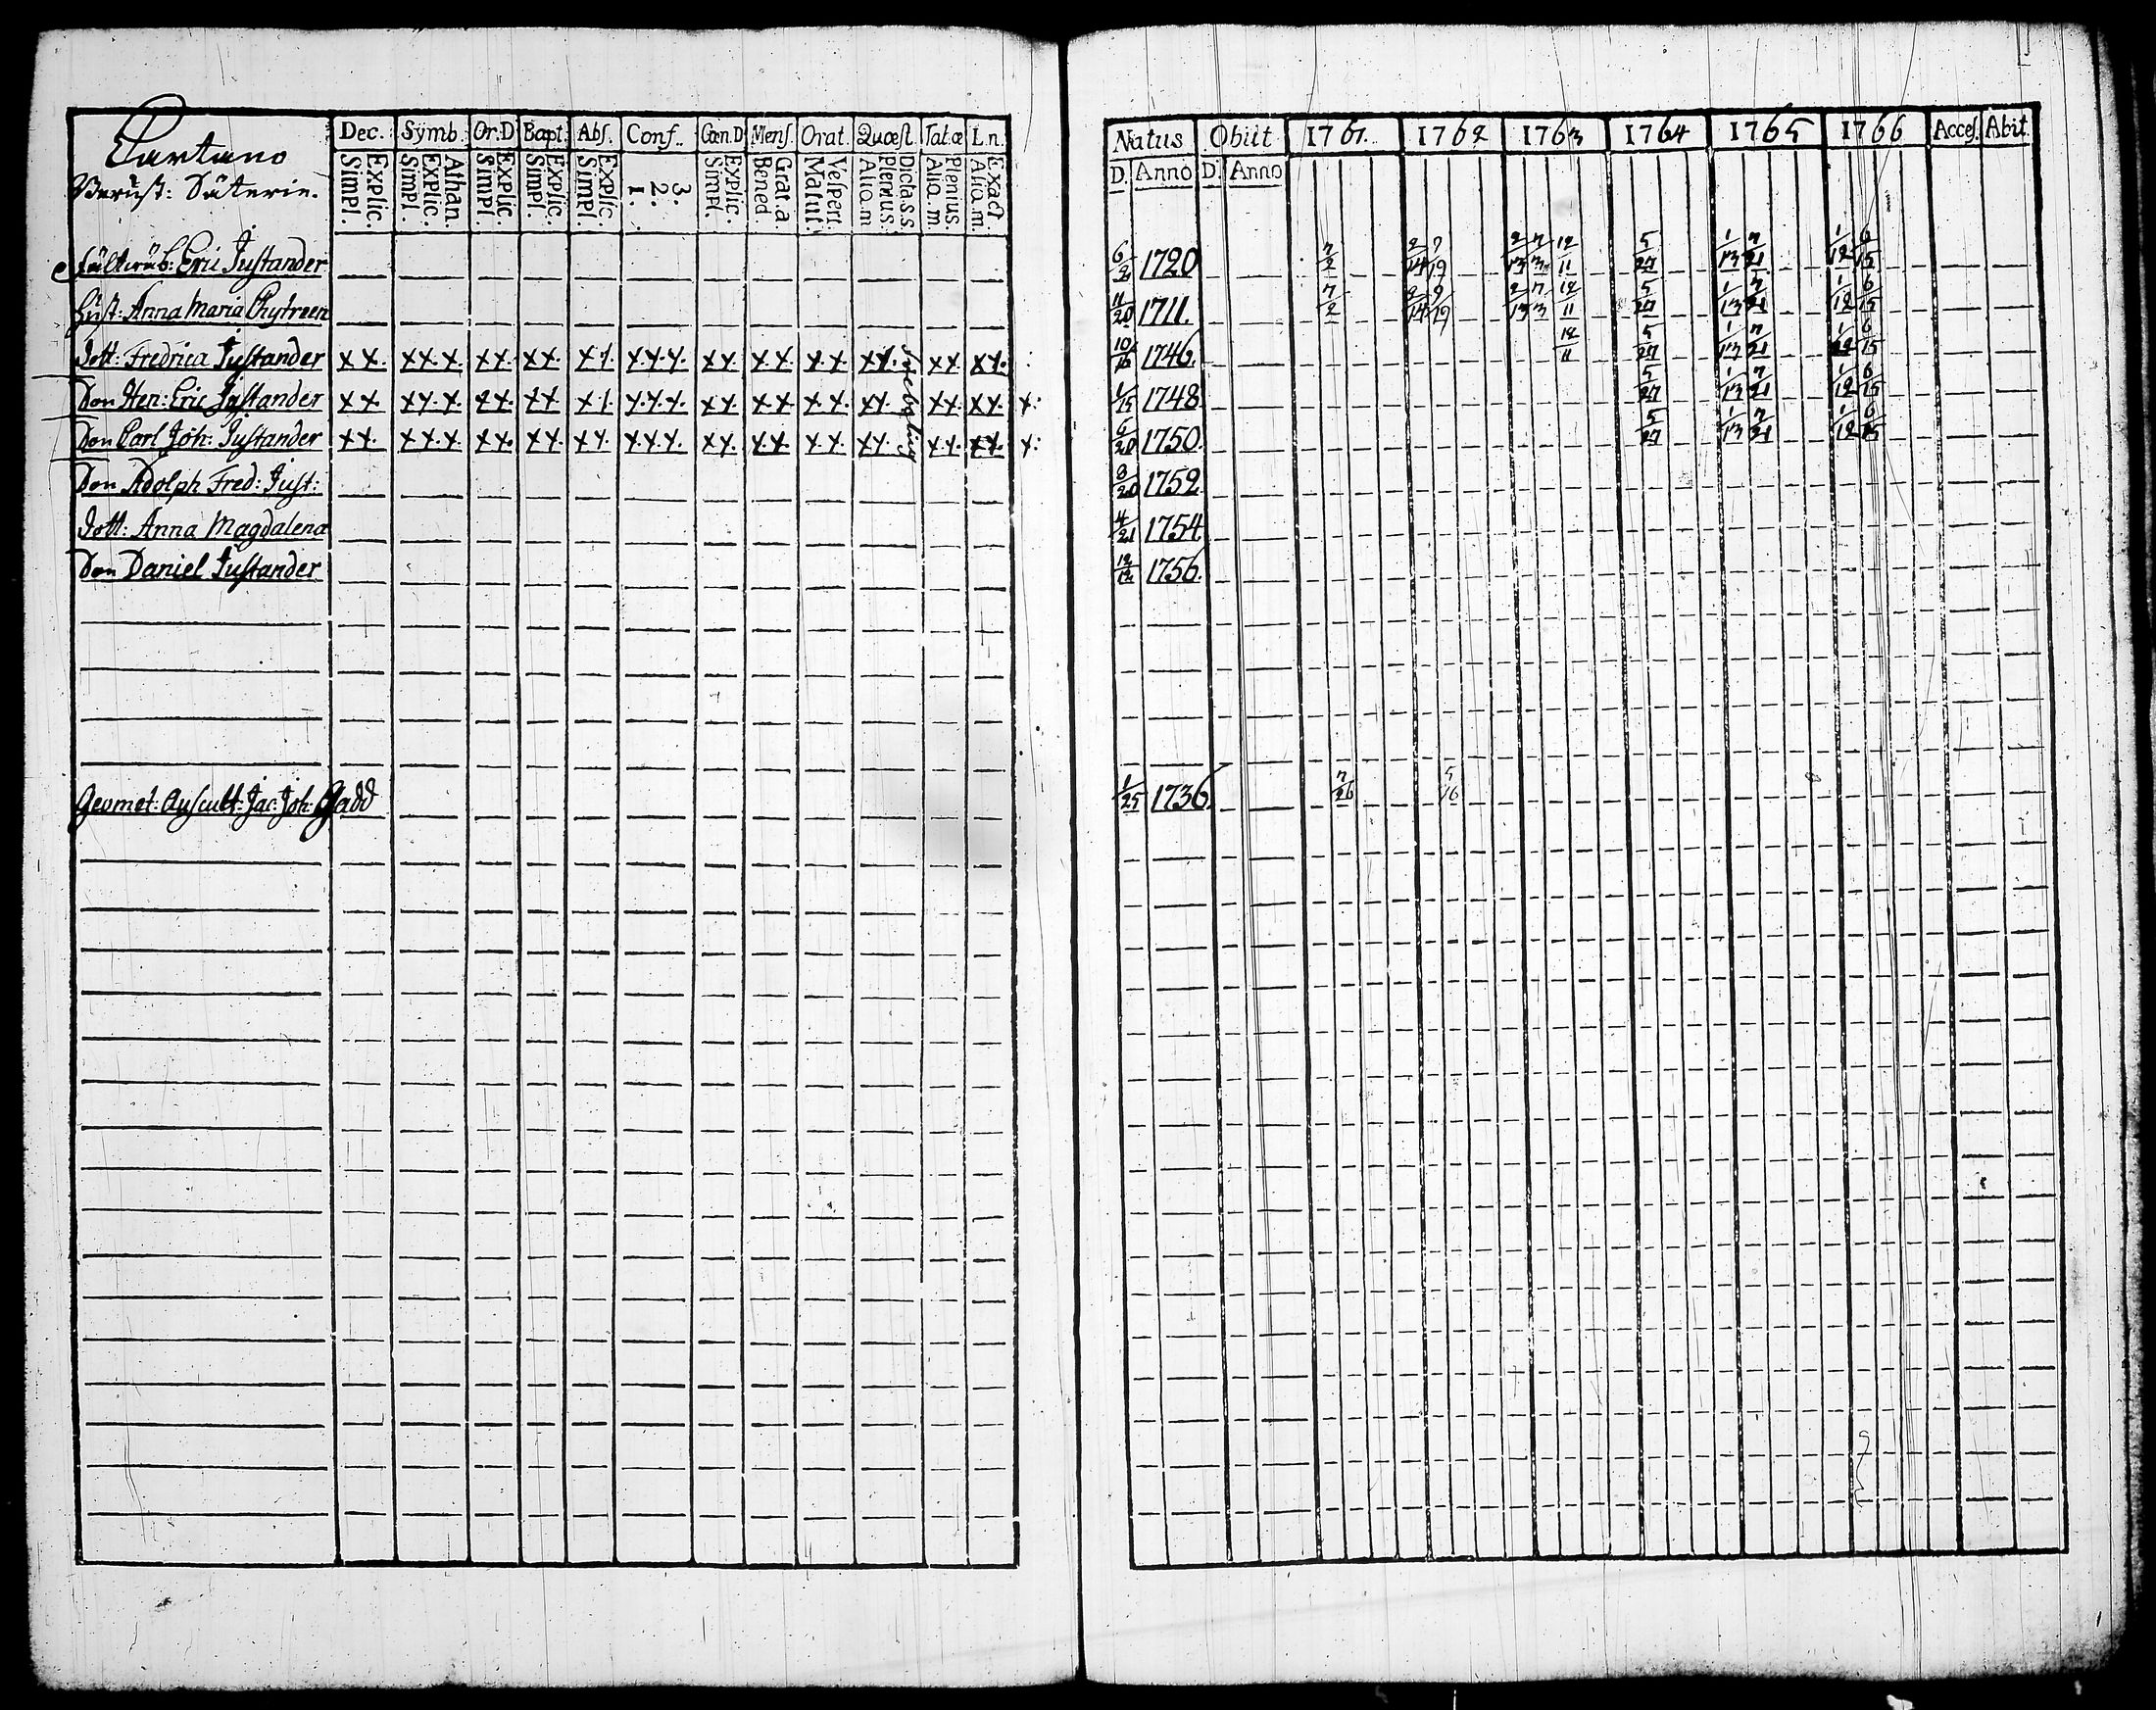 Cartano
Berust: Säterie.
Dec. Symb. Or:D Bapt. Abs. Conf. Cœn.D Mens. Orat. Quæst. Tat.æ L.n.
Explic. Simpl. Athan. Explic. Simpl. Explic. Simpl. Explic. Simpl. Explic. Simpl. 3. 2. 1. Explic. Simpl. Grat.a. Bened. Vespert. Matut. Dicta.s.s. Plenius. Aliq.m Plenius. Aliq.m. Exact Aliq.m.
Natus Obiit 1761. 1762 1763 1764 1765 1766 Acces. Abit.
D. Anno D. Anno
Fältväb: Eric Justander 6/2 1720 7/2 2/14 9/19 2/13 7/3 12/11 5/27 1/13 7/21 1/12 6/15
Hust: Anna Maria Chytreen 11/20 1711. 7/2 2/14 9/19 2/13 7/3 12/11 5/27 1/13 7/21 1/12 6/15
Dott: Fredrica Justander xx. xx.x. xx. xx. xx. x.x.x. xx. xx. x.x. xx. xx xx. 10/16 1746. 12/11 5/27 1/13 7/21 1/12 6/15
Son Hen: Eric Justander xx. xx.x. xx. xx xx. x.x.x. xx. xx x.x. xx. xx. xx. x: 1/15 1748. 5/27 1/13 7/21 1/12 6/15
Son Carl Joh: Justander xx. xx.x. xx. xx. xx. x.x.x. xx. xx. x.x. xx. x.x. xx. x: 6/20 1750. 5/27 1/13 7/21 1/12 6/15
Son Adolph Fred: Just: 8/20 1752.
Dott: Anna Magdalena 4/21 1754.
Son Daniel Justander 12/12 1756.
Geomet: Auscult: Jac: Joh: Gadd 1/25 1736. 7/26 5/16